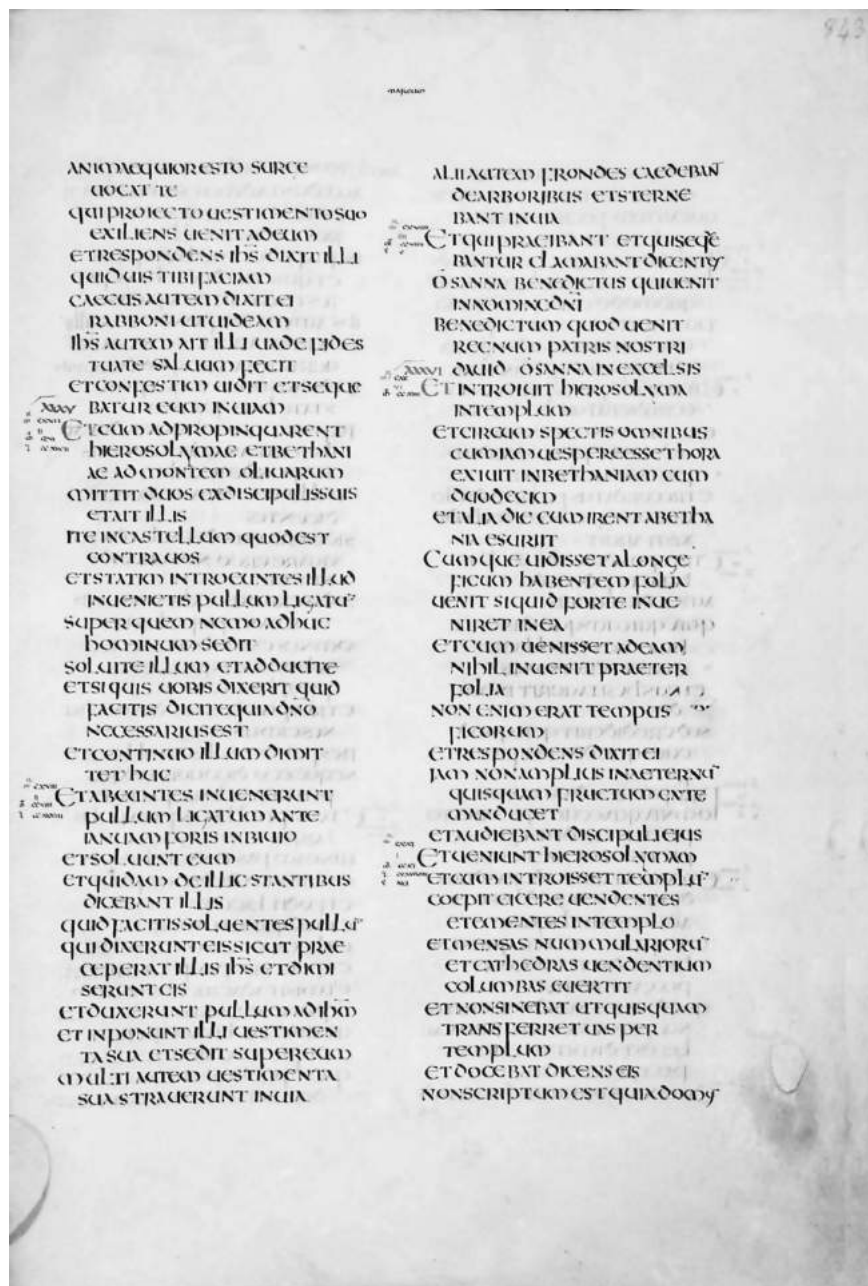 843
MARCUM
ANIMAEQUIOR ESTO SURGE
UOCAT TE
QUI PROIECTO UESTIMENTO SUO
EXILIENS UENIT AD EUM
ET RESPONDENS IHS DIXIT ILLI
QUID UIS TIBI FACIAM
CAECUS AUTEM DIXIT EI
RABBONI UT UIDEAM
IHS AUTEM AIT ILLI UADE FIDES
TUA TE SALUUM FECIT
ET CONFESTIM UIDIT ET SEQUE
XXXV BATUR EUM IN UIAM
ET CUM ADPROPINQUARENT
HIEROSOLYMAE ET BETHANI
AE AD MONTEM OLIUARUM
MITTIT DUOS EX DISCIPULIS SUIS
ET AIT ILLIS
ITE IN CASTELLUM QUOD EST
CONTRA UOS
ET STATIM INTROEUNTES ILLUD
INUENIETIS PULLUM LIGATU
SUPER QUEM NEMO ADHUC
HOMINUM SEDIT
SOLUITE ILLUM ET ADDUCITE
ET SI QUIS UOBIS DIXERIT QUID
FACITIS DICITE QUIA DNO
NECESSARIUS EST
ET CONTINUO ILLUM DIMIT
TET HUC
ET ABEUNTES INUENERUNT
PULLUM LIGATUM ANTE
IANUAM FORIS IN BIUIO
ET SOLUUNT EUM
ET QUIDAM DE ILLIC STANTIBUS
DICEBANT ILLIS
QUID FACITIS SOLUENTES PULLU
QUI DIXERUNT EIS SICUT PRAE
CEPERAT ILLIS IHS ET DIMI
SERUNT EIS
ET DUXERUNT PULLUM AD IHM
ET INPONUNT ILLI UESTIMEN
TA SUA ET SEDIT SUPER EUM
MULTI AUTEM UESTIMENTA
SUA STRAUERUNT IN UIA
ALII AUTEM FRONDES CAEDEBANT
DE ARBORIBUS ET STERNE
BANT IN UIA
ET QUI PRAEIBANT ET QUI SEQUE
BANTUR CLAMABANT DICENTES
OSANNA BENEDICTUS QUI UENIT
IN NOMINE DNI
BENEDICTUM QUOD UENIT
REGNUM PATRIS NOSTRI
XXXVI DAUID OSANNA IN EXCELSIS
ET INTROIUIT HIEROSOLYMA
IN TEMPLUM
ET CIRCUMSPECTIS OMNIBUS
CUM IAM UESPERE ESSET HORA
EXIUIT IN BETHANIAM CUM
DUODECIM
ET ALIA DIE CUM IRENT A BETHA
NIA ESURIIT
CUMQUE UIDISSET A LONGE
FICUM HABENTEM FOLIA
UENIT SI QUID FORTE INUE
NIRET IN EA
ET CUM UENISSET AD EAM
NIHIL INUENIT PRAETER
FOLIA
NON ENIM ERAT TEMPUS
FICORUM
ET RESPONDENS DIXIT EI
IAM NON AMPLIUS IN AETERNU
QUISQUAM FRUCTUM EX TE
MANDUCET
ET AUDIEBANT DISCIPULI EIUS
ET UENIUNT HIEROSOLYMAM
ET CUM INTROISSET TEMPLU
COEPIT EICERE UENDENTES
ET EMENTES IN TEMPLO
ET MENSAS NUMMULARIORU
ET CATHEDRAS UENDENTIUM
COLUMBAS EUERTIT
ET NON SINEBAT UT QUISQUAM
TRANSFERRET UAS PER
TEMPLUM
ET DOCEBAT DICENS EIS
NON SCRIPTUM EST QUIA DOMUS